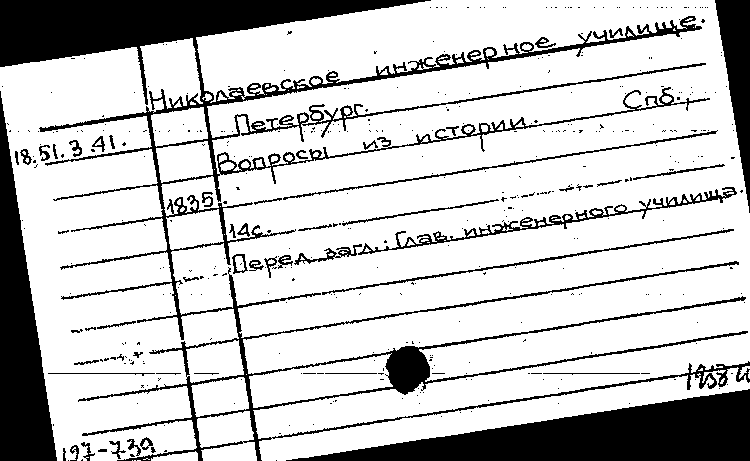 Николаевское инженерное училище.
Петербург.
18.51.3.41.
Вопросы из истории. Спб.,
1835.
14с.
Перед загл.: Глав. инженерного училища.
197-739